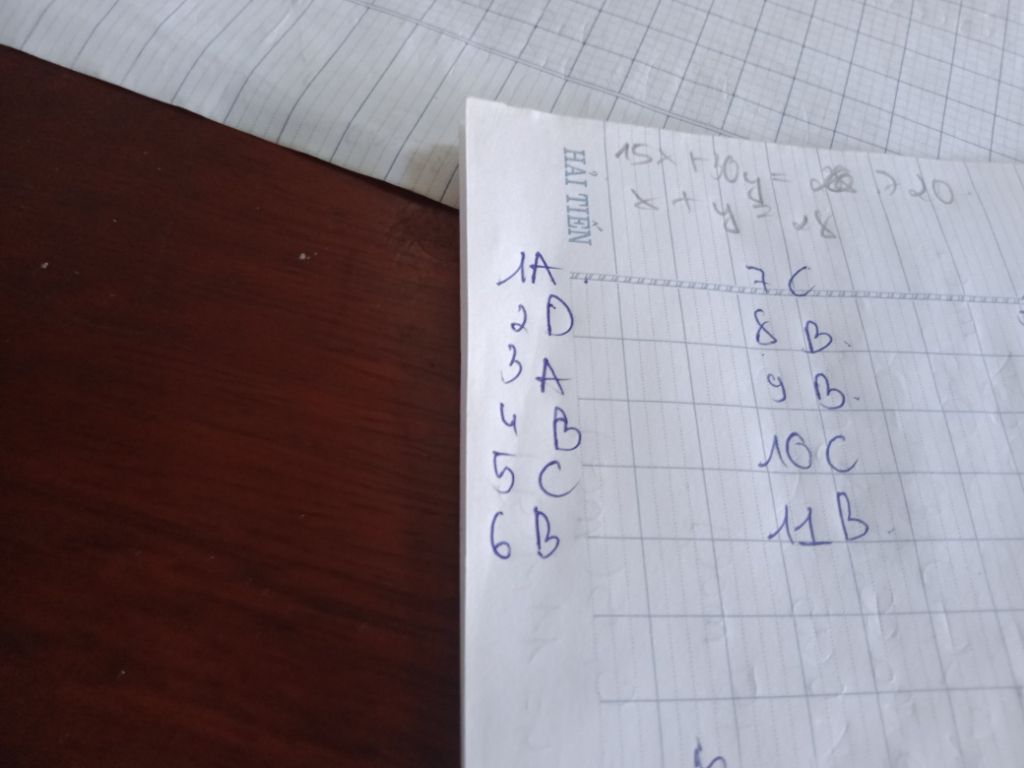 HẢI TIẾN
15x + 10y = > 20
x + y = 18
1A
2 D
3 A
4 B
5 C
6 B
7 C
8 B.
9 B.
10 C
11 B.